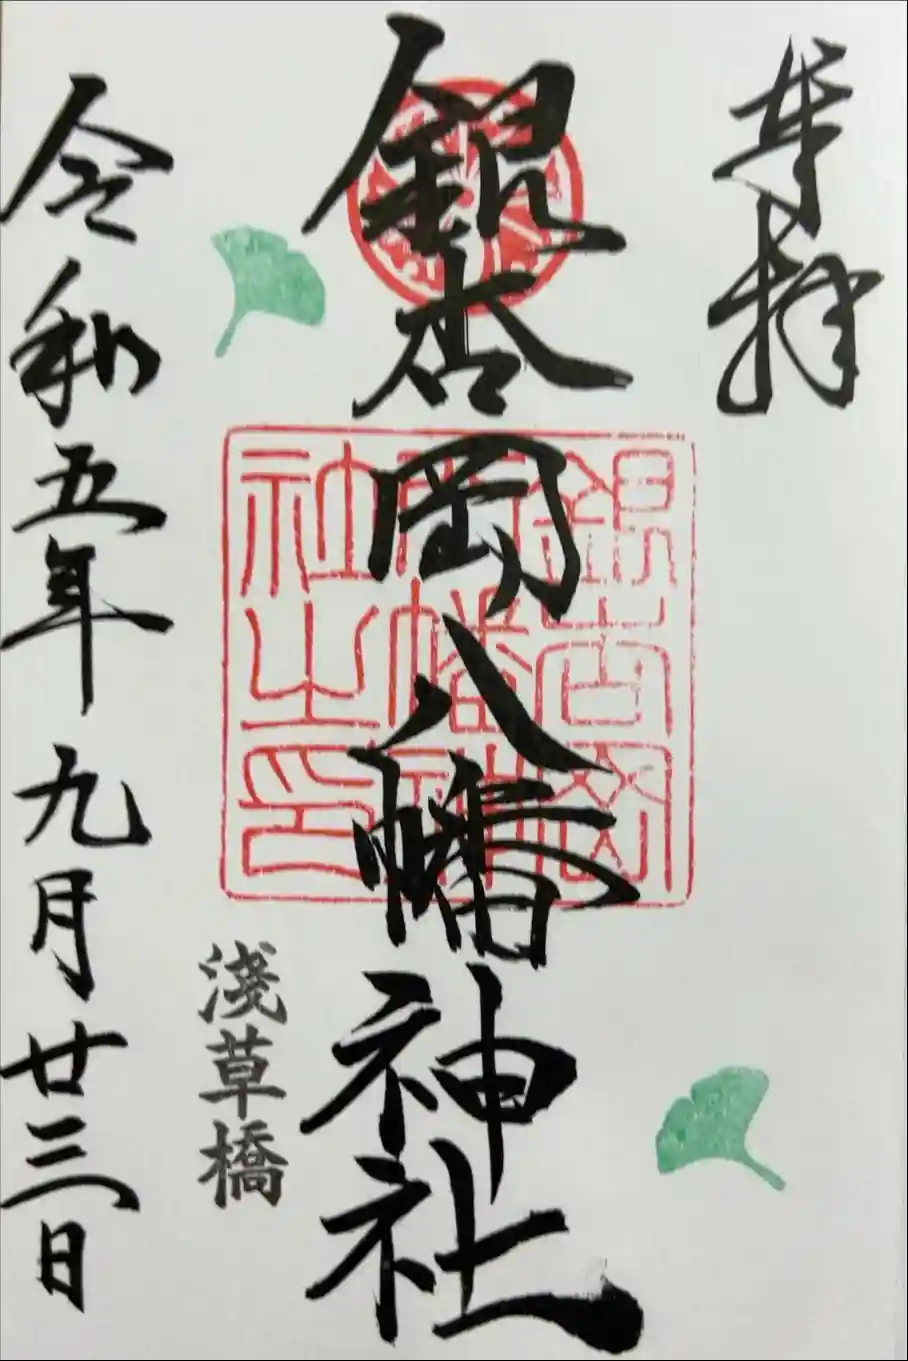 奉拝
銀杏岡八幡神社
銀杏岡
八幡神
社之印
淺草橋
令和五年九月廿三日